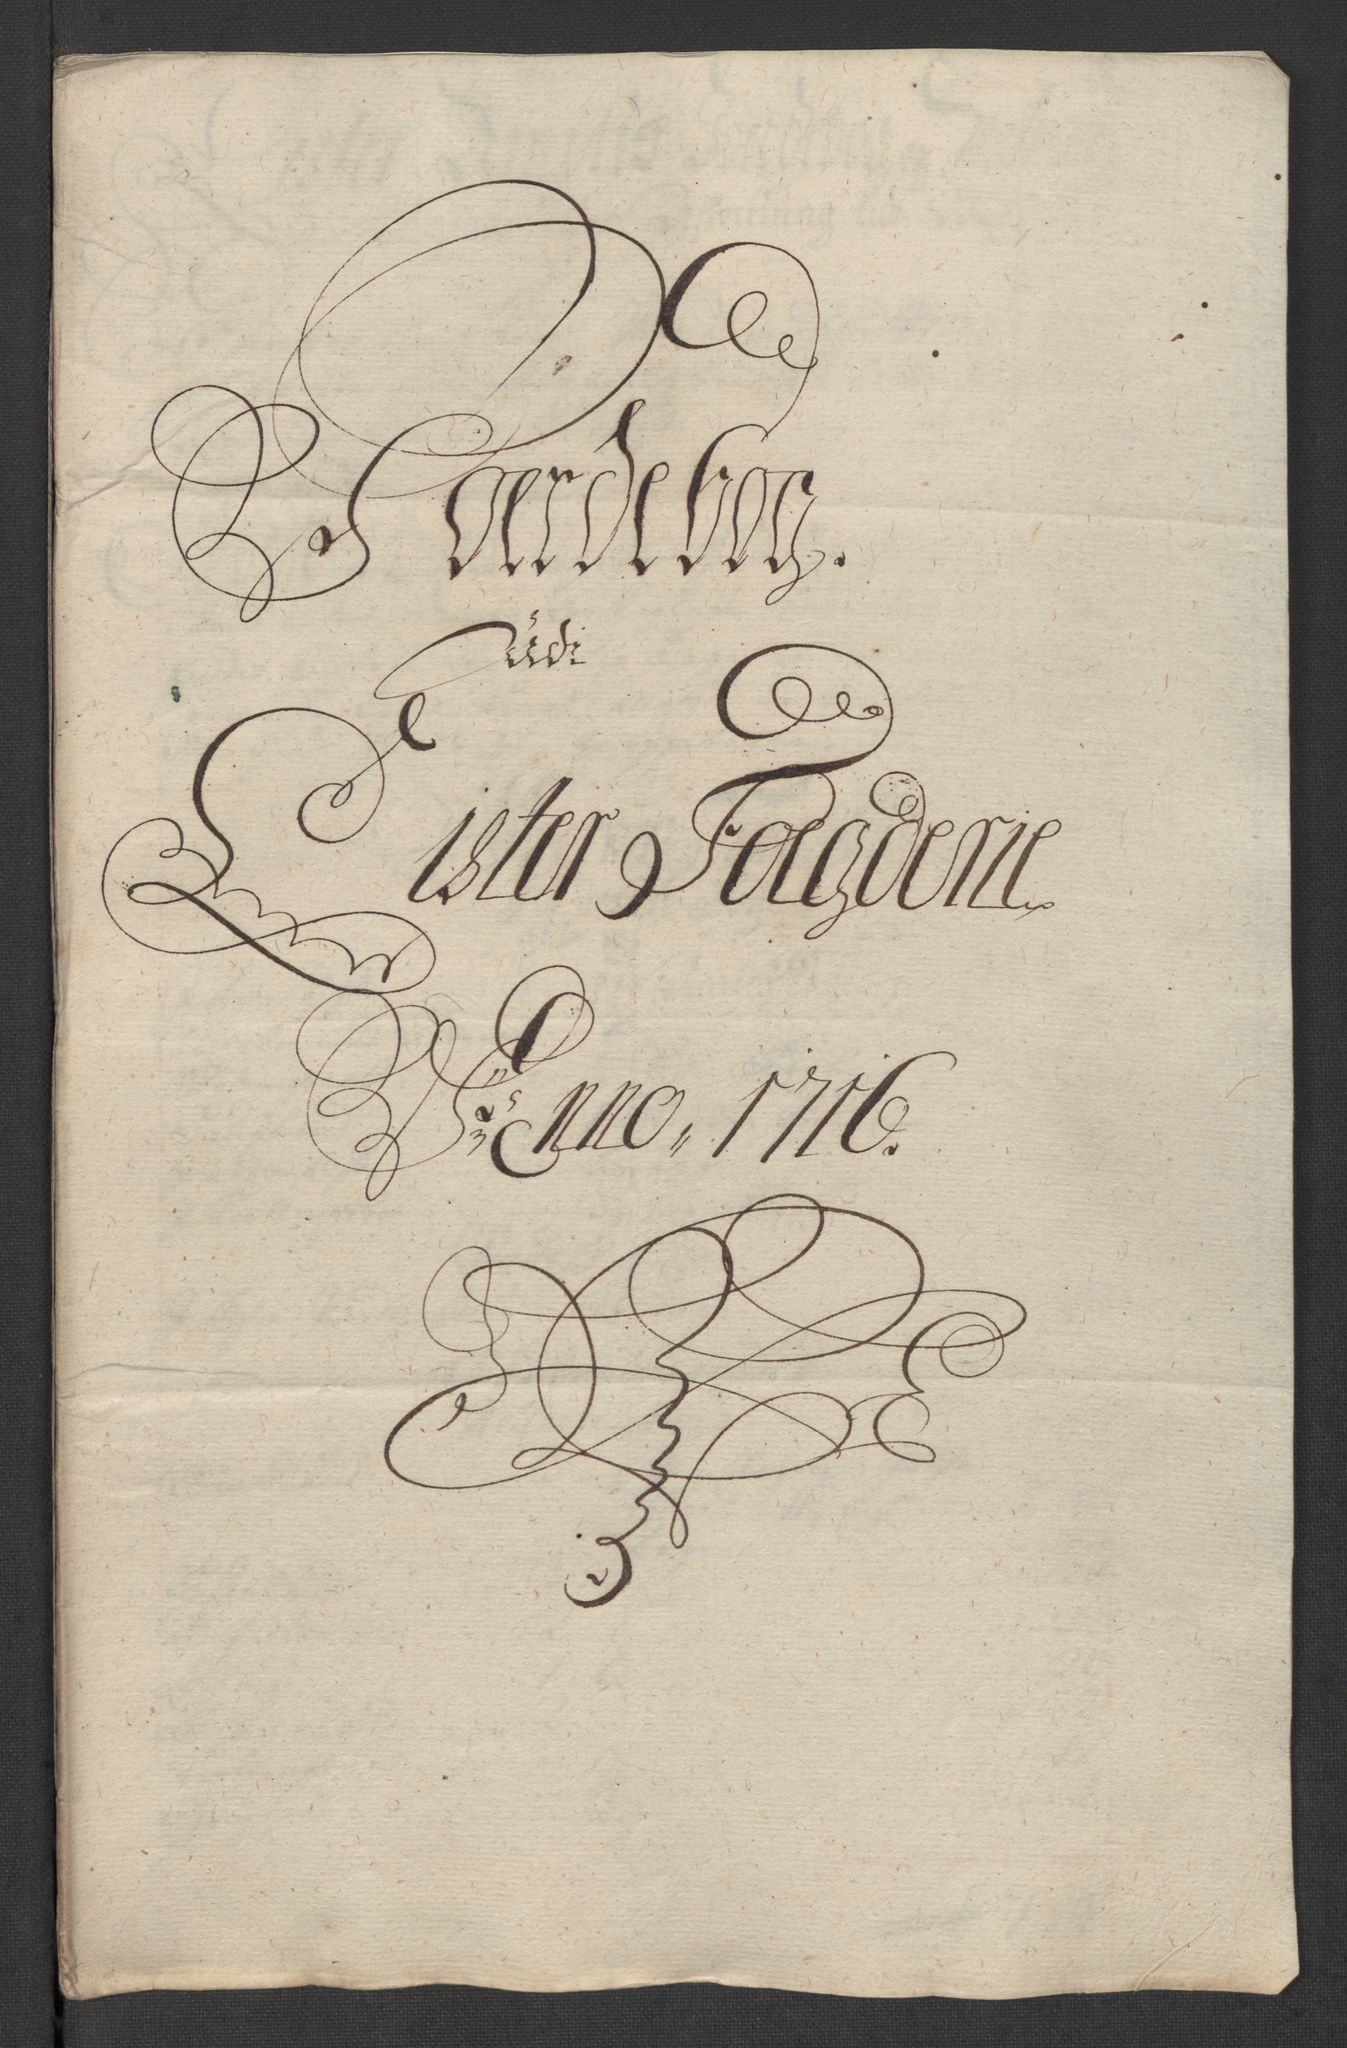 Jordebog.
Udi
Lister Fogderie
Anno, 1716.